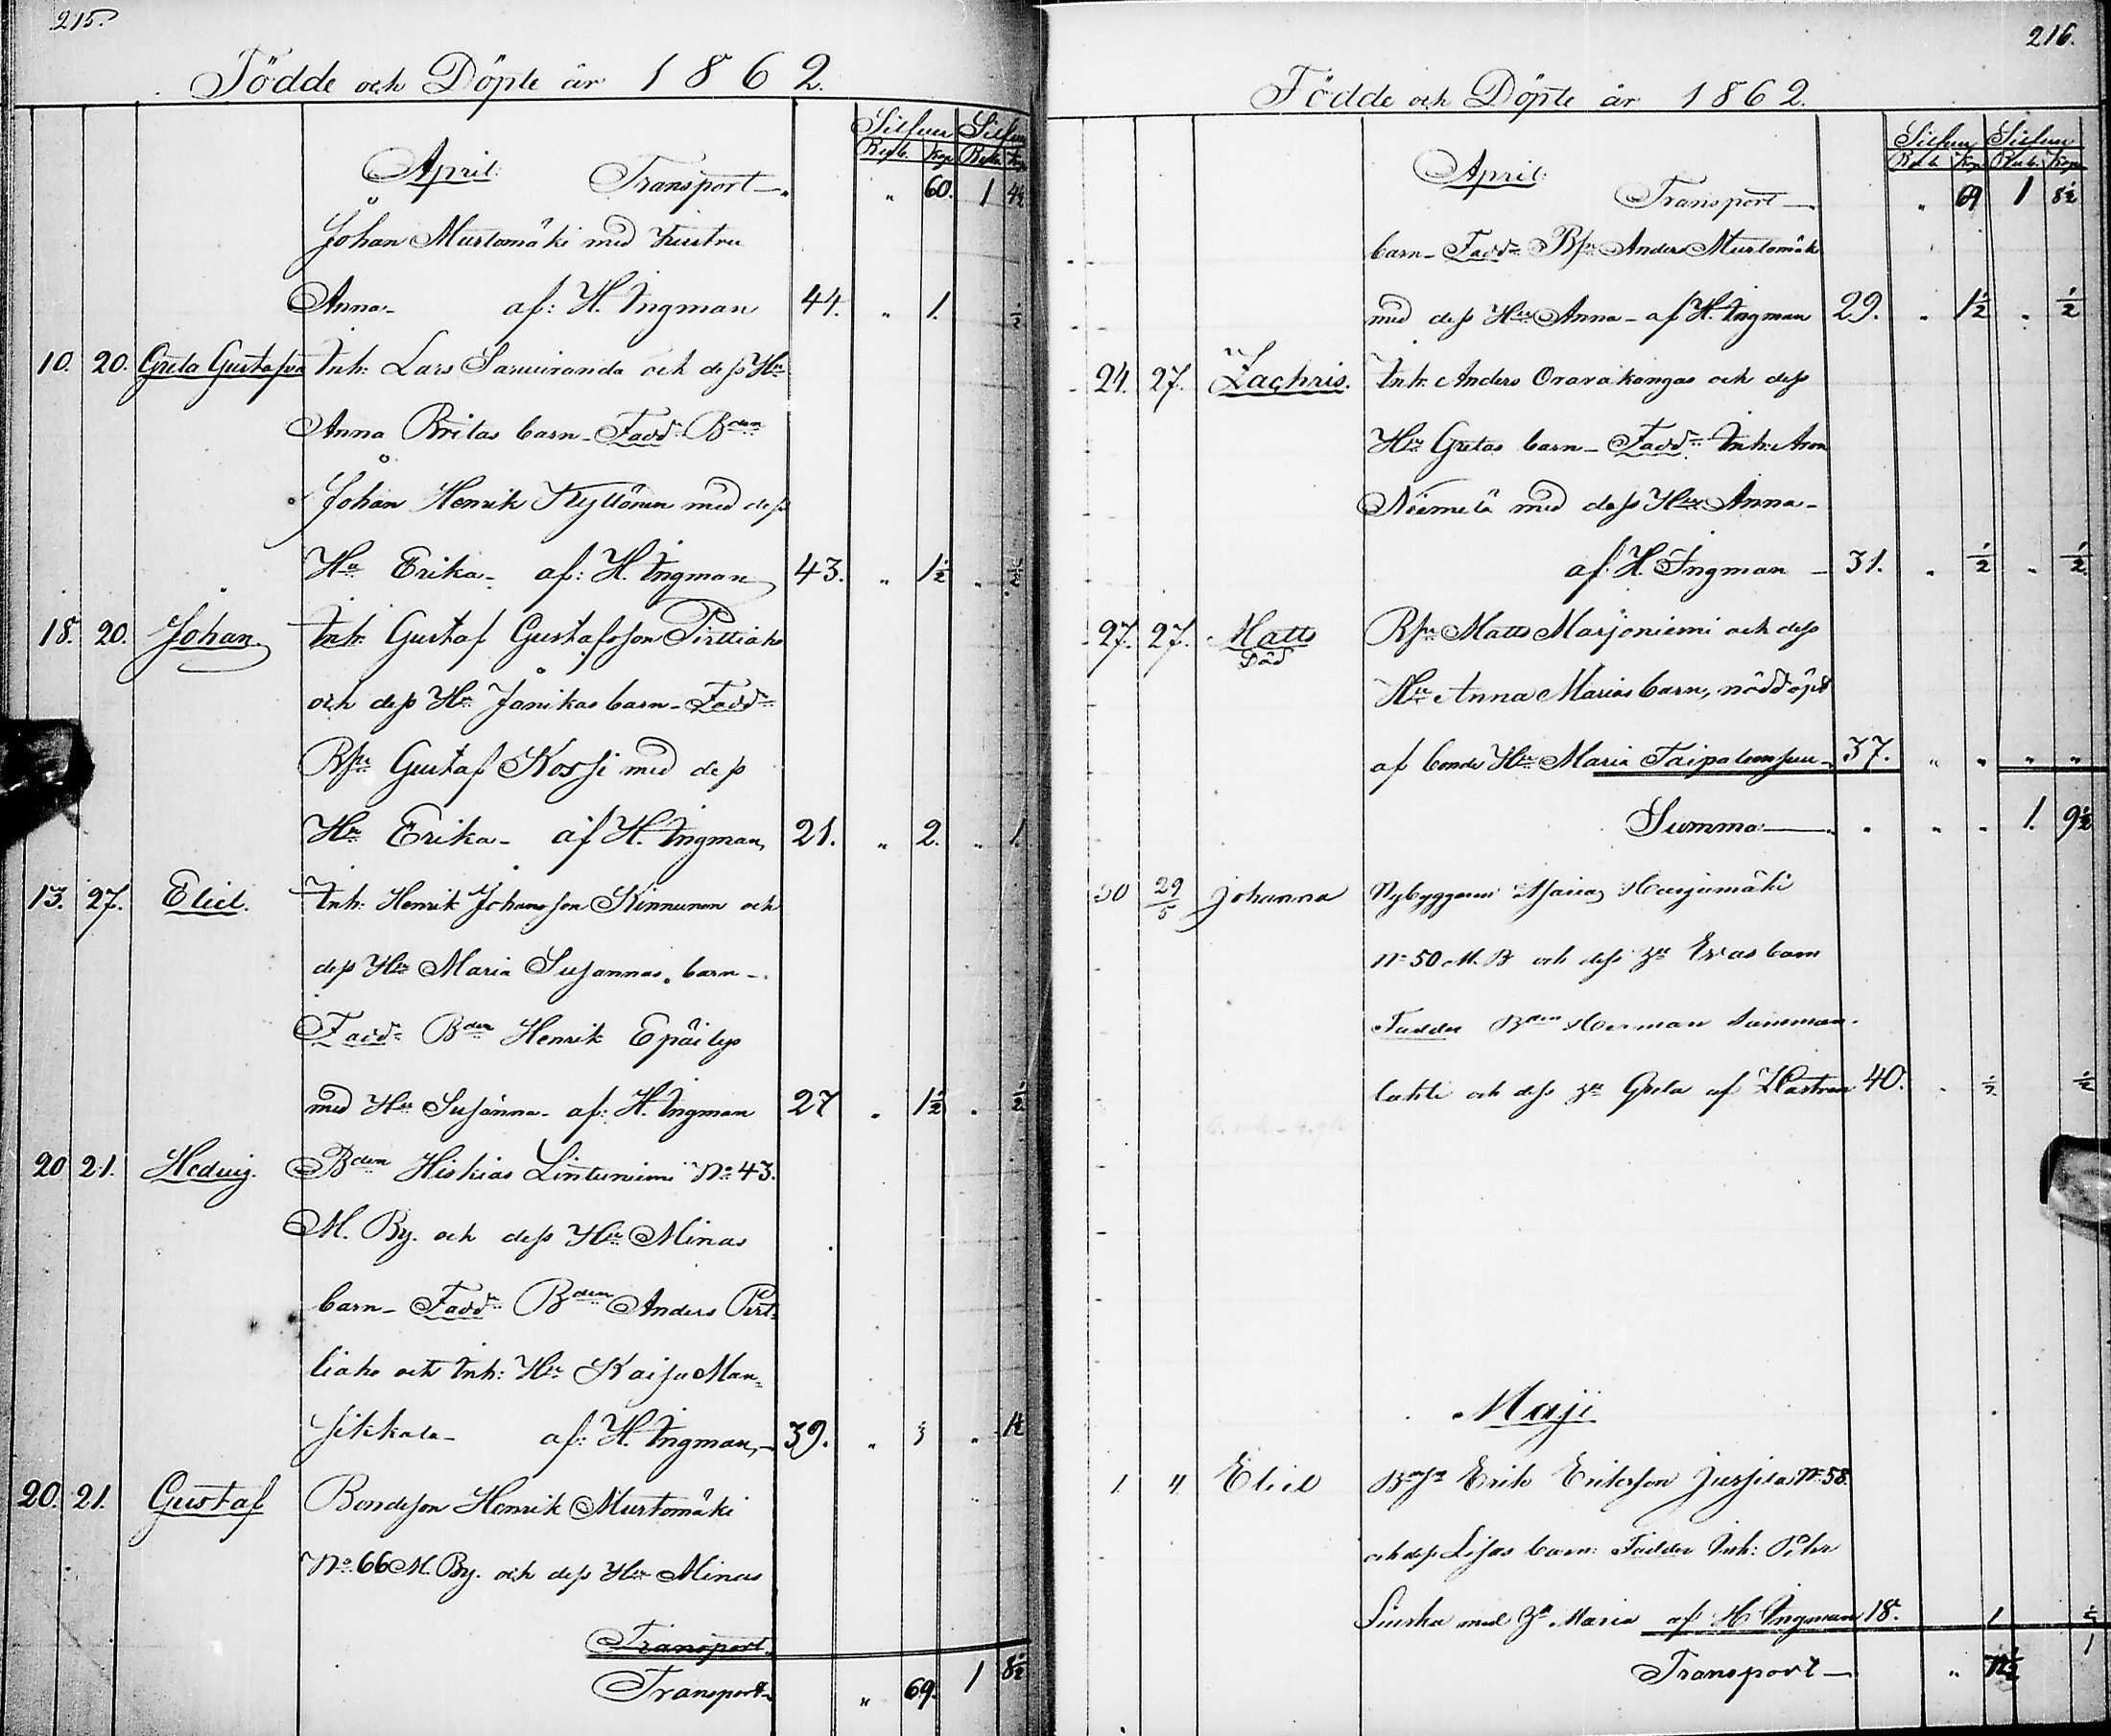 215.
Födde och Döpte år 1862.
Silfver Silfver
Rub. Kop. Rub. Kop.
April. Transport — " 60. 1 4½
Johan Murtomäki med hustru
Anna — af: H. Ingman 44. " 1. ½
10. 20. Greta Gustafva Inh: Lars och dess Hu
Anna Britas barn — Fadd: Bden
Johan Henrik Kyllönen med dess
Hu Erika — af: H. Ingman 43. " 1½ " ½
18. 20. Johan. Inh: Gustaf Gustafsson Pirttiaho
och dess Hu Jånikas barn — Fadd:
Bsn Gustaf Kossi med dess
Hu Erika — af H. Ingman, 21. " 2. " 1.
13. 27. Eliel. Inh: Henrik Johansson Kinnunen och
dess Hu Maria Susannas barn —
Fadd: Bden Henrik Epäilys
med Hu Susanna — af: H. Ingman 27 " 1½ " ½
20 21. Hedvig. Bden Hiskias Lintuniemi No 43.
M. By. och dess Hu Minas
barn — Fadd: Bden Anders Pirt=
tiaho och Inh: Hu Kaisa Man=
sikkala — af: H. Ingman, — 39. " 3 " 1½
20. 21. Gustaf Bondeson Henrik Murtomäki
No 66 M. By. och dess Hu Minas
Transport
Transport " 69. 1 8½
216.
Födde och Döpte år 1862.
Silfver Silfver
Rub. Kop. Rub. Kop.
April. Transport — " 69 1 8½
barn — Fadd: Bsn Anders Murtomäki
med dess Hu Anna — af H. Ingman 29. " 1½ " ½
21. 27. Zachris. Inh: Anders Oravakangas och dess
Hu Gretas barn — Fadd: Inh: Aron
Niemelä med dess Hu Anna —
af: H. Ingman — 31. " ½ " ½
27. 27. Matts Bsn Matts Marjoniemi och dess
Död
Hu Anna Marias barn, nöddöpt
af bonde Hu Maria 37. " " " "
Summa — " " 1. 9½
30 29/5 Johanna Nybyggaren Harjumäki
No 50 M. B och dess Hu Evas barn
Fadder Bden Herman Tamman=
lahti och dess Hu Greta af 40. " ½ ½
Maji
1 4 Eliel Erik Eriksson No 58.
och dess Lisas barn: Fadder Inh: Pehr
med Hu Maria af H Ingman 18. 1 ½
Transport — " 72½ 1